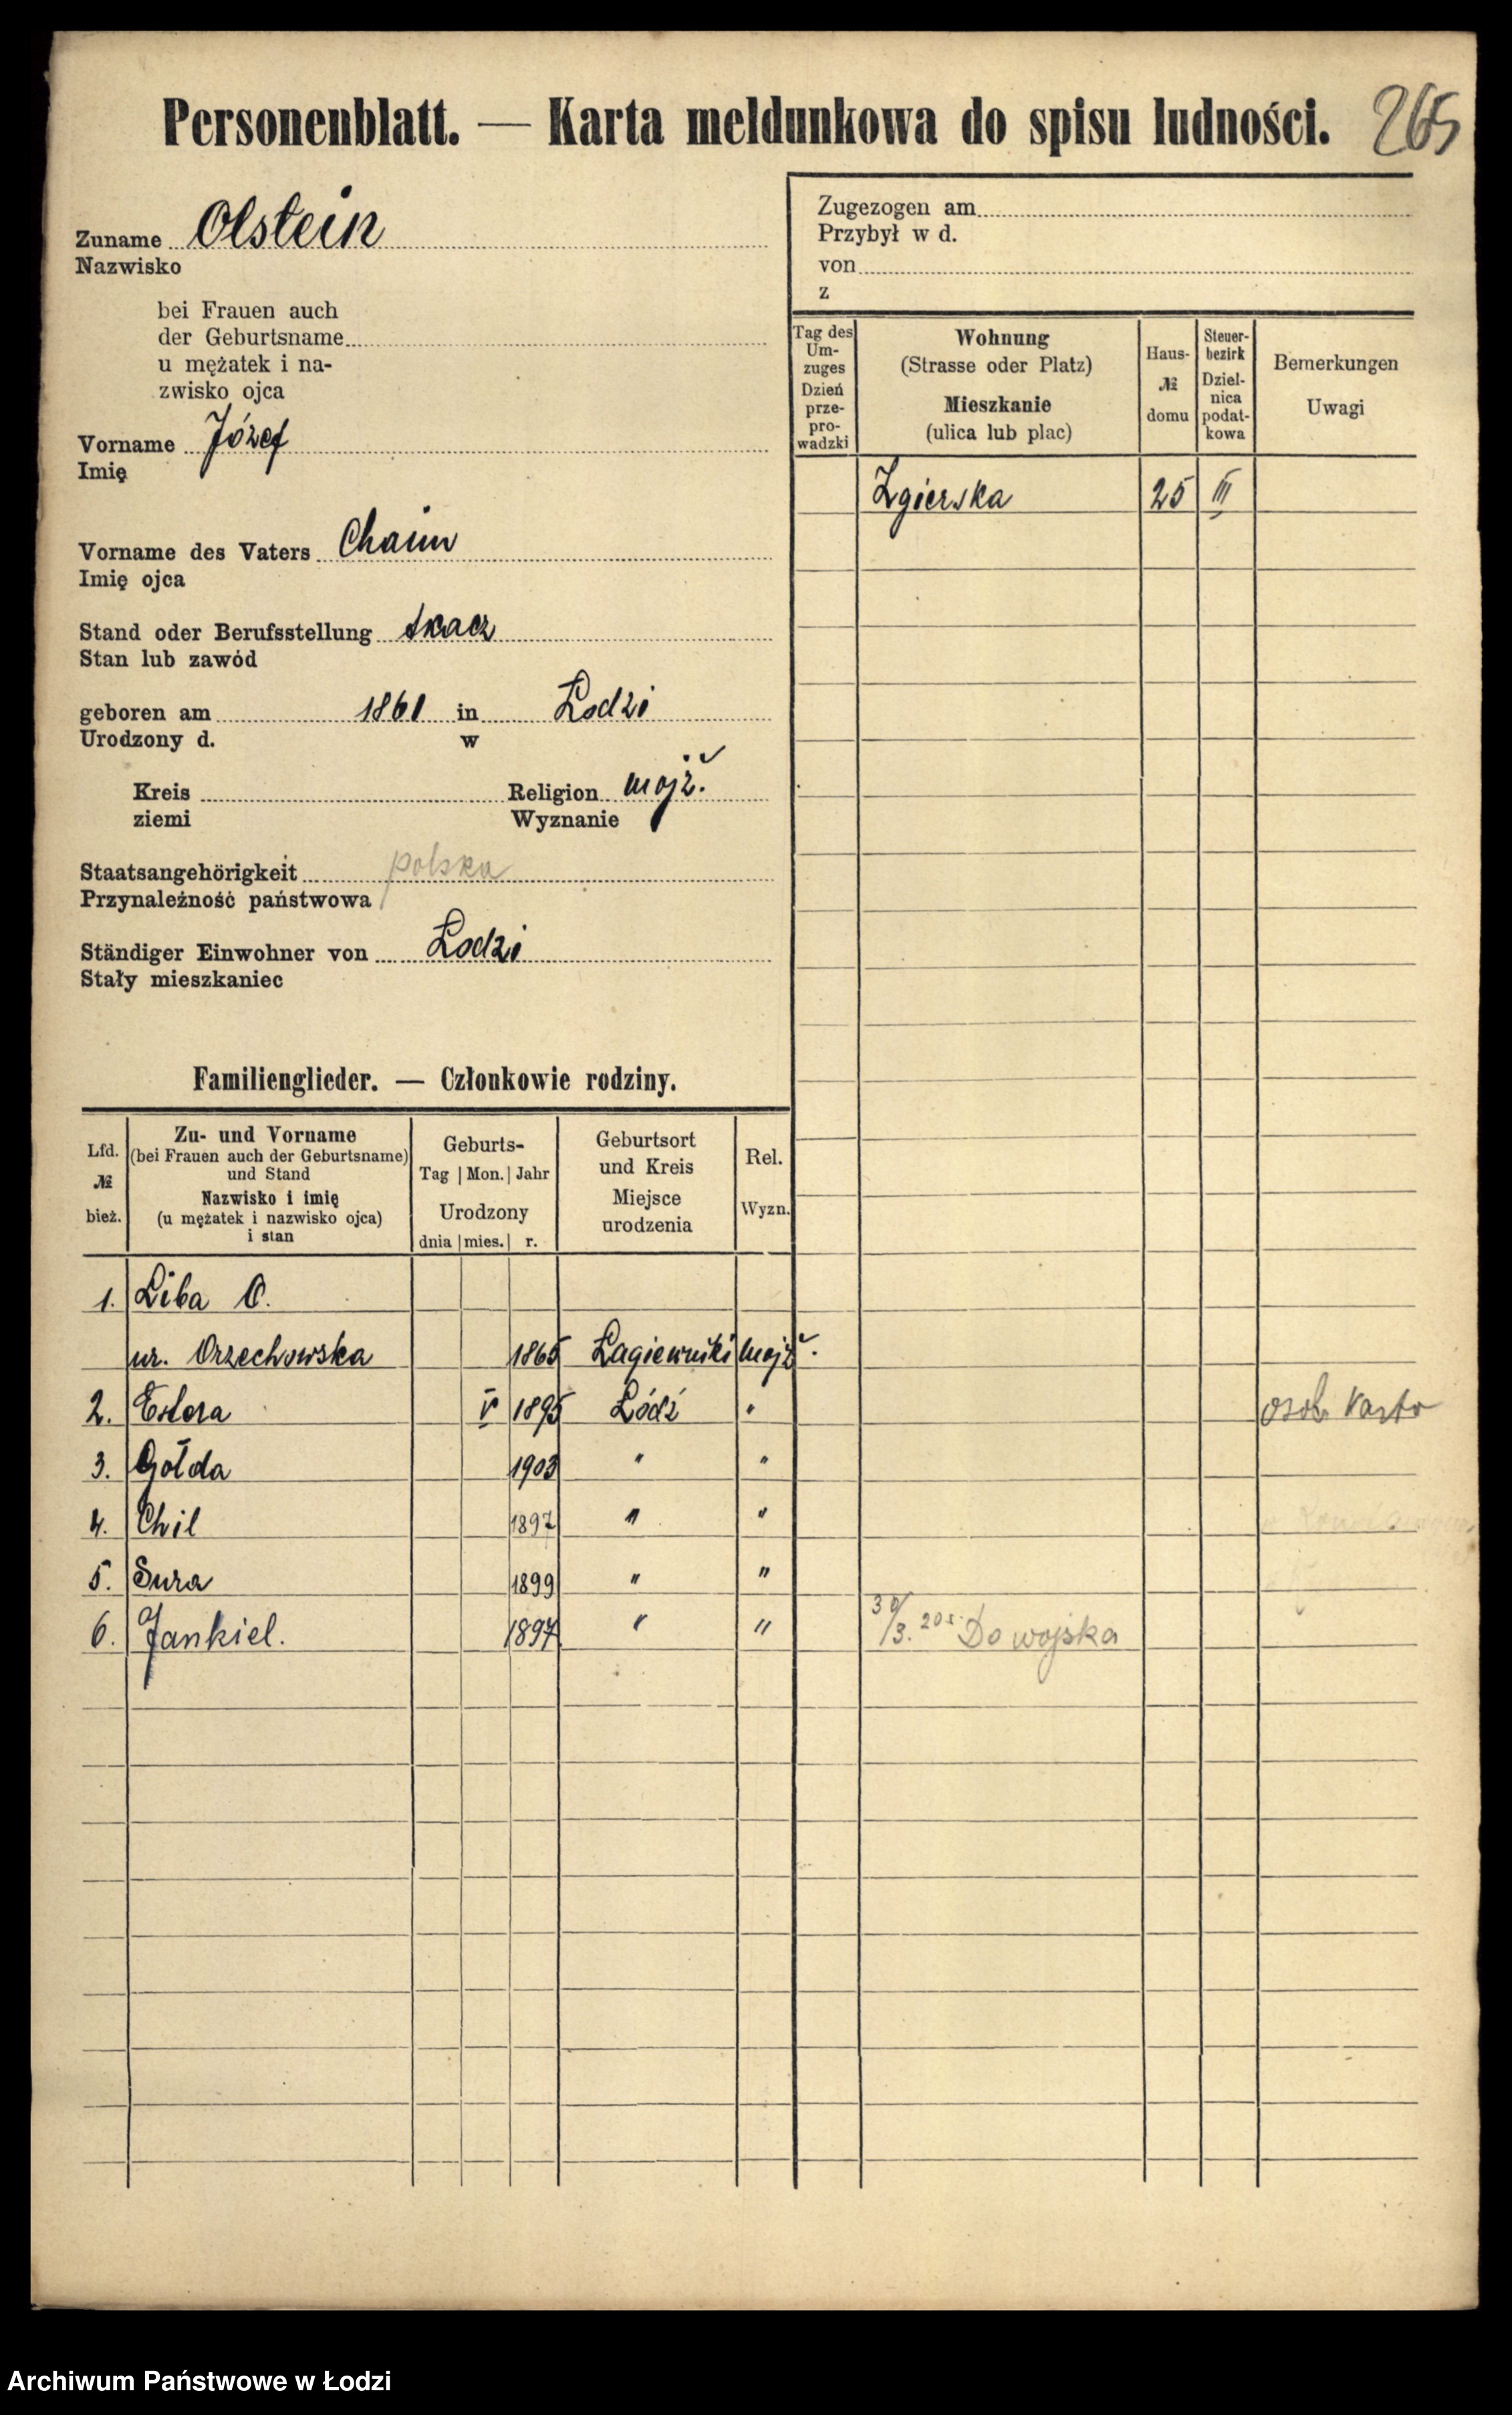 Personenblatt. — Karta meldunkowa do spisu ludności. 265
Zuname Olstein
Nazwisko
bei Frauen auch
der Geburtsname
u mężatek i na-
zwisko ojca
Vorname Józef
Imię
Vorname des Vaters Chaim
Imię ojca
Stand oder Berufsstellung tkacz
Stan lub zawód
geboren am 1861 in Łodzi
Urodzony d. w
Kreis Religion mojż.
ziemi Wyznanie
Staatsangehörigkeit polska
Przynależność państwowa
Ständiger Einwohner von Łodzi
Stały mieszkaniec
Zugezogen am
Przybył w d.
von
z
Tag des Um-zuges Dzień prze-pro-wadzki
Wohnung (Strasse oder Platz) Mieszkanie (ulica lub plac)
Haus- № domu
Steuer-bezirk Dziel-nica podat-kowa
Bemerkungen Uwagi
Zgierska 25 II
Familienglieder. — Członkowie rodziny.
Lfd. № bież.
Zu- und Vorname (bei Frauen auch der Geburtsname) und Stand Nazwisko i imię (u mężatek i nazwisko ojca) i stan
Geburts- Tag | Mon. | Jahr Urodzony dnia | mies. | r.
Geburtsort und Kreis Miejsce urodzenia
Rel. Wyzn.
1. Liba O.
ur. Orzechowska 1865 Łagiewniki mojż.
2. Estera V 1895 Łódź "
osob. karta
3. Gołda 1903 " "
4. Chil 1897 " "
5. Sura 1899 " "
6. Jankiel. 1897 " "
30/3. 20 r. Do wojska
Archiwum Państwowe w Łodzi